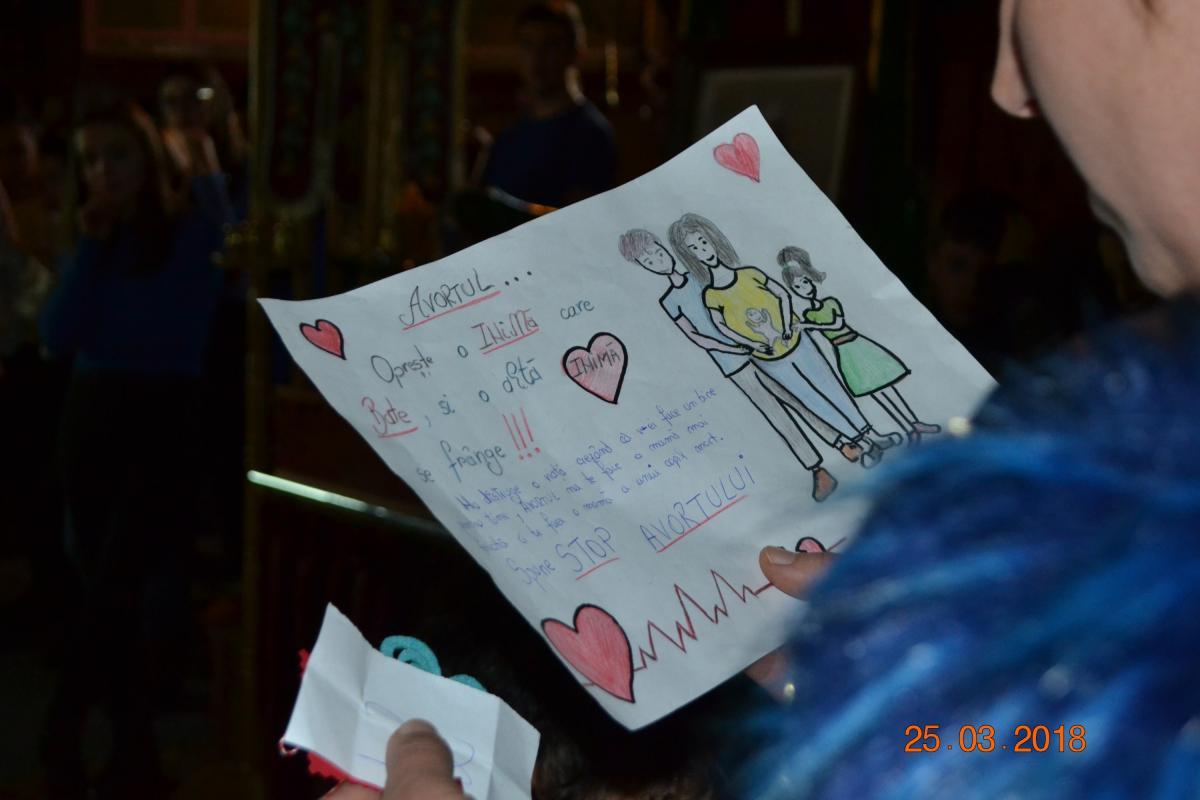 AVORTUL...
Oprește o INIMĂ care
Bate, si o altă
se frânge !!!
INIMĂ
Nu distruge o viață crezând că vei face un bine
AVORTUL nu te face a mamă mai
ci te face o mamă a unui copil mort.
Spune STOP AVORTULUI
25.03.2018